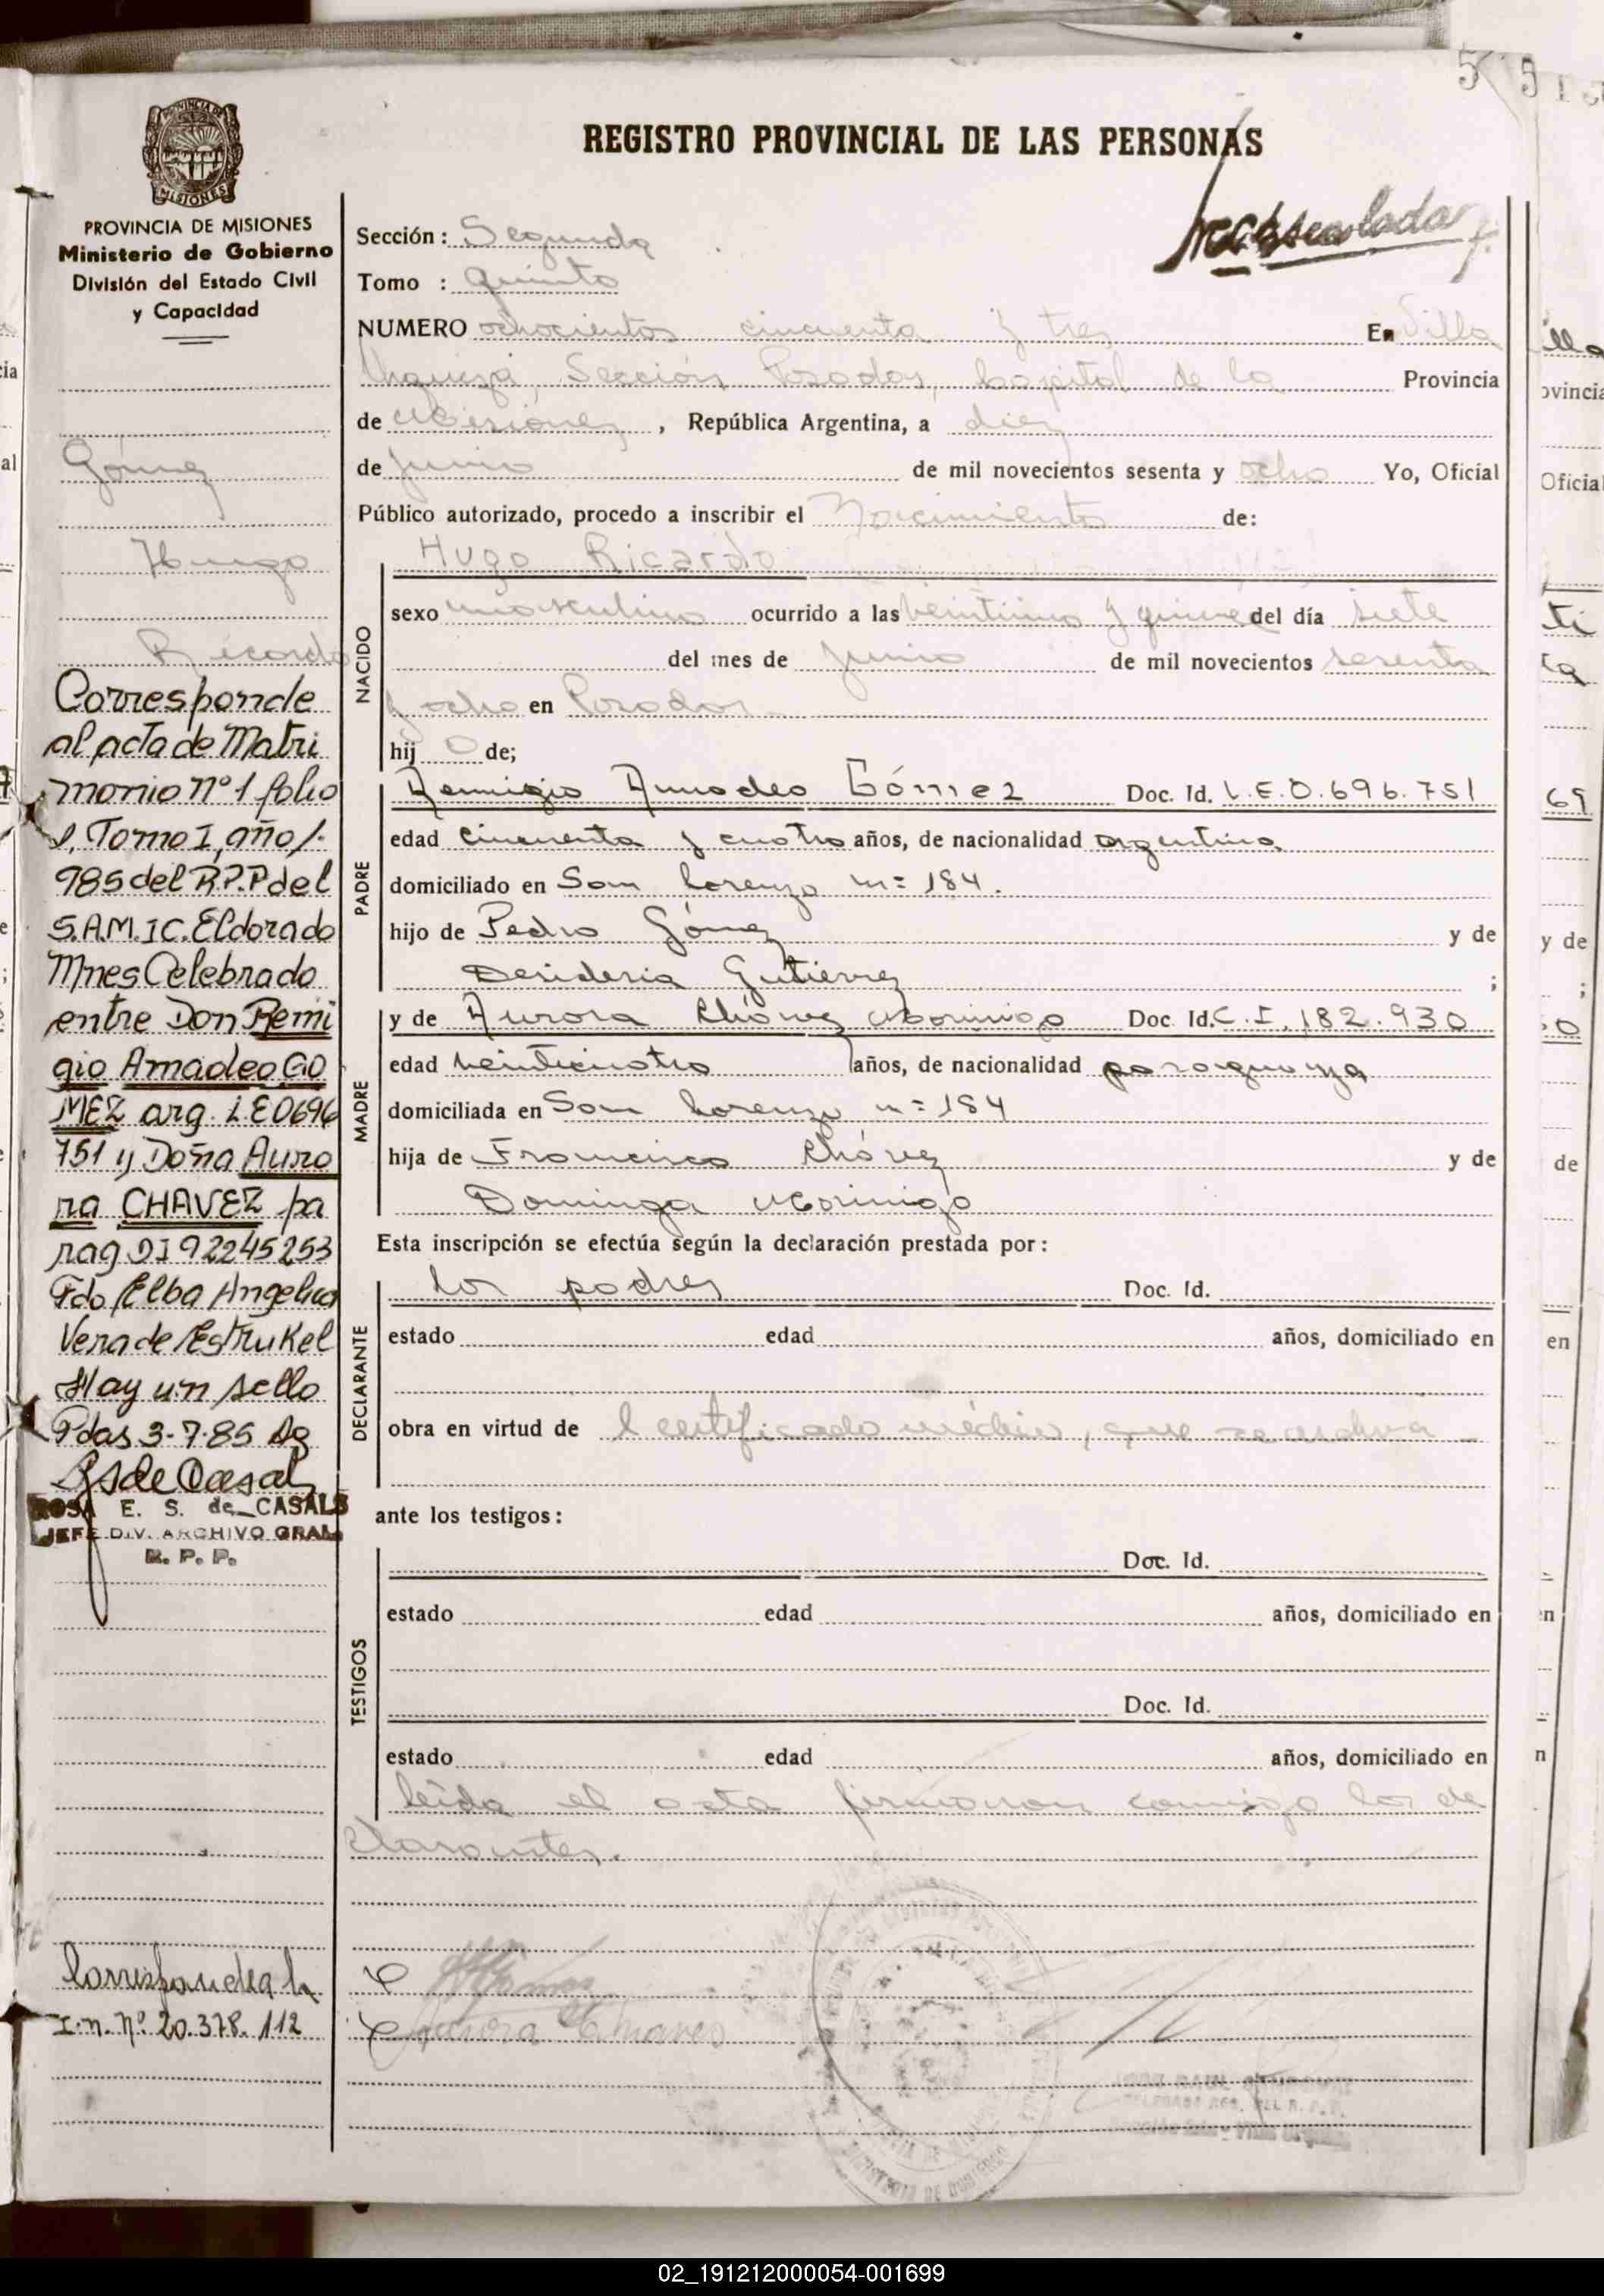 REGISTRO PROVINCIAL DE LAS PERSONAS
PROVINCIA DE MISIONES
Ministerio de Gobierno
División del Estado Civil
y Capacidad
Gómez
Hugo
Ricardo
Corresponde
al acta de Matri
monio nº 1 folio
1, Tomo I, año 1.
985 del R.P.P del
S.A.M.I.C. Eldorado
Mnes Celebrado
entre Don Remi
gio Amadeo GO
MEZ arg. L E 0696
751 y Doña Auro
ra CHAVEZ pa
rag D I 92245253
Fdo Elba Angelica
Vera de Estrukel
Hay un sello
Pdas 3-7-85
ROSA E. S. de CASALS
JEFE DIV. ARCHIVO GRAL
R. P. P.
Corresponde a la
I.n. Nº 20.378.112
Sección: Segunda
Tomo : Quinto
NUMERO ochocientos cincuenta y tres En Villa
Urquiza, Sección Posadas, Capital de la Provincia
de Misiones, República Argentina, a diez
de Junio de mil novecientos sesenta y ocho Yo, Oficial
Público autorizado, procedo a inscribir el Nacimiento de:
Hugo Ricardo
NACIDO
sexo masculino ocurrido a las veintiuna y quince del día siete
del mes de Junio de mil novecientos sesenta
y ocho en Posadas
hij o de;
PADRE
Remigio Amadeo Gómez Doc. Id. L.E.0.696.751
edad cincuenta y cuatro años, de nacionalidad argentina
domiciliado en San Lorenzo nº 184.
hijo de Pedro Gómez y de
Desideria Gutierrez ;
MADRE
y de Aurora Chávez Morinigo Doc. Id. C.I. 182.930
edad veinticuatro años, de nacionalidad paraguaya
domiciliada en San Lorenzo nº 184
hija de Francisco Chávez y de
Dominga Morinigo
Esta inscripción se efectúa según la declaración prestada por:
DECLARANTE
los padres Doc. Id.
estado edad años, domiciliado en
obra en virtud de l certificado médico, que se archiva
ante los testigos:
TESTIGOS
Doc. Id.
estado edad años, domiciliado en
Doc. Id.
estado edad años, domiciliado en
leída el acta firmaron conmigo los de
clarantes.
Aurora Chavez
02_191212000054-001699